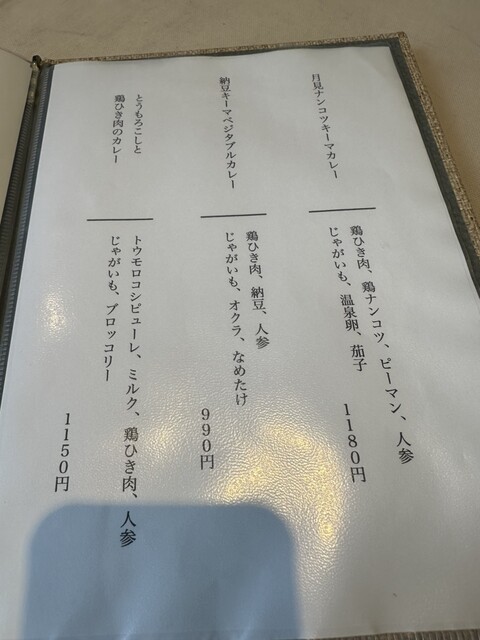 月見ナンコツキーマカレー
鶏ひき肉、鶏ナンコツ、ピーマン、人参
じゃがいも、温泉卵、茄子
1180円
納豆キーマベジタブルカレー
鶏ひき肉、納豆、人参
じゃがいも、オクラ、なめたけ
990円
とうもろこしと
鶏ひき肉のカレー
トウモロコシピューレ、ミルク、鶏ひき肉、人参
じゃがいも、ブロッコリー
1150円